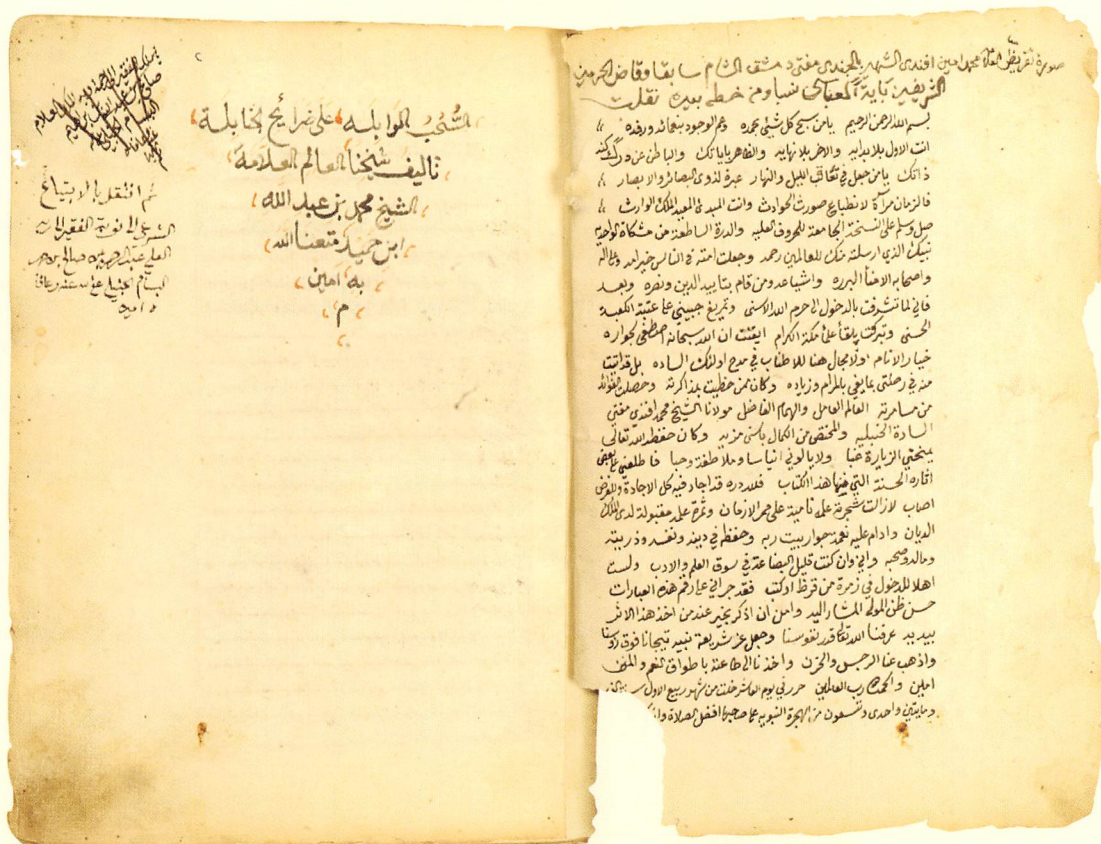 صورة تقريظ العلامة محمد امين افندى الشهير بالجندى مفتى دمشق الشام سابقا وقاضى الحرمين
الشريفين نسبا ومن خطه بيده نقلت
بسم الله الرحمن الرحيم يامن سبح كل شيئ بحمده وعم الوجود بنعمائه ورفده
انت الاول بلا بدايه والاخر بلا نهايه والظاهر باياتك والباطن عن درك كنه
ذاتك يامن جعل في تعاقب الليل والنهار عبرة لذوى البصائر والابصار
فالزمان مرآة لانطباع صورت الحوادث وانت المبدئ المعيد الملك الوارث
صل وسلم على النسخة الجامعة للحروف العليه والدرة الساطعة من مشكاة الواحديه
نبيك الذى ارسلته منك للعالمين رحمه وجعلت امته في الناس خير امه وعلى اله
واصحابه الامنأ البرره واشياعه ومن قام بتاييد الدين ونصره وبعد
فاني لما تشرفت بالدخول الى حرم الله الاسنى وتمريغ جبيني على عتبة الكعبة
الحسنى وتبركت بلقأ علمأ مكة الكرام ايقنت ان الله سبحانه اصطفى لجواره
خيار الانام ولامجال هنا للاطناب في مدح اولئك الساده بل قد اتيت
منه في رحلتى بما يفي بالمرام وزياده وكان ممن حظيت بمذاكرته وحصلت الفوائد
من مسامرته العالم العامل والهمام الفاضل مولانا الشيخ محمد افندى مفتى
السادة الحنبليه والمختص من الكمال باسنى مزيه وكان حفظه الله تعالى
يمنحني الزيارة غبا ولا يالوني ايناسا وملاطفة وحبا فاطلعني على بعض
اثاره الحسنة التي منها هذا الكتاب فلله دره قد اجاد فيه كل الاجادة وللغرض
اصاب لازالت شجرة علمه نامية على ممر الازمان وثمرة عمله مقبولة لدى الملك
الديان وادام عليه نعمة جوار بيت ربه وحفظه في دينه ونفسه وذريته
وماله وصحبه واني وان كنت قليل البضاعة في سوق العلم والادب ولست
اهلا للدخول في زمرة من قرظ او كتب فقد جرأني على رقم هذه العبارات
حسن ظن المولى المشار اليه وامن ان اذكر بخير عند من اخذ هذا الاثر
بيديه عرفنا الله تعالى قدر نفوسنا وجعل عز شريعة نبيه تيجانا فوق رؤسنا
واذهب عنا الرجس والحزن واخذنا الى طاعته باطواق النعم والمنن
امين والحمد لله رب العالمين حرر في يوم العاشر خلت من شهر ربيع الاول
ومايتين واحدى وتسعون من الهجرة النبويه على صاحبها افضل الصلاة
٢
السُّحُبُ الوابله على ضرائح الحنابلة
تاليف شيخنا العالم العلامة
الشيخ محمد بن عبد الله
ابن حميد متعنا الله
به امين
م
ثم انتقل بالابتياع
الشرعى الى نوبة الفقير الى الله
العلى عبد الله صالح بن
البسام الحنبلى عفا الله عنه وعافاه
امين